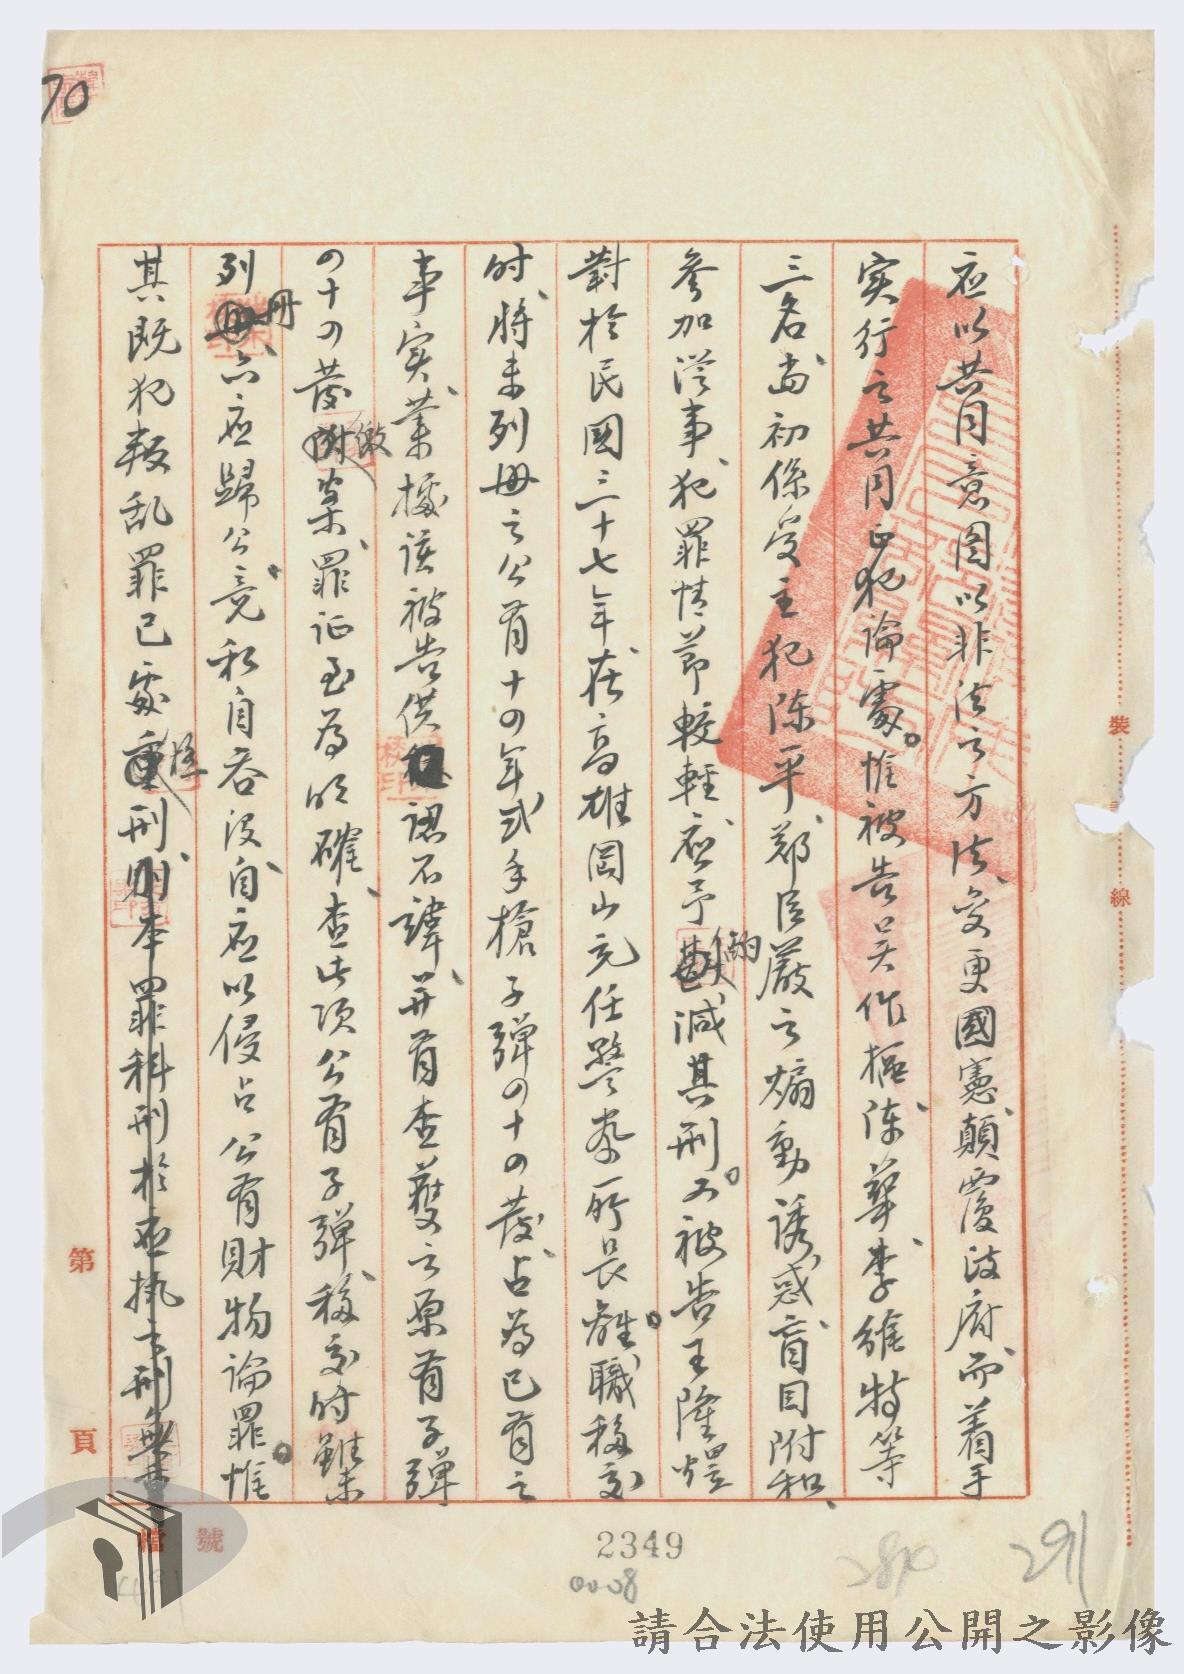 70
应以共同意图以非法之方法、变更國憲、顛覆政府、而着手
実行之共同正犯論處。惟被告吴作樞、陳華、李維特等
三名、当初係受主犯陈平、鄭臣嚴之煽動誘惑、盲目附和、
参加从事、犯罪情節較輕、应予酌减其刑。又被告王隆煋
對於民國三十七年、在高雄岡山充任警察所長離職移交
时、將未列册之公有十四年式手槍子彈四十四发、占為已有之
事实、業據該被告供認不諱、并有查獲之原有子彈
四十四发繳案、罪证至为明確、查此项公有子彈、移交时雖未
列冊、亦应歸公、竟私自吞没、自应以侵占公有財物論罪。惟
其既犯叛乱罪已處重刑則本罪科刑於应执之刑無重
裝
線
第
頁
檔
號
2349
0008
280
291
請合法使用公開之影像